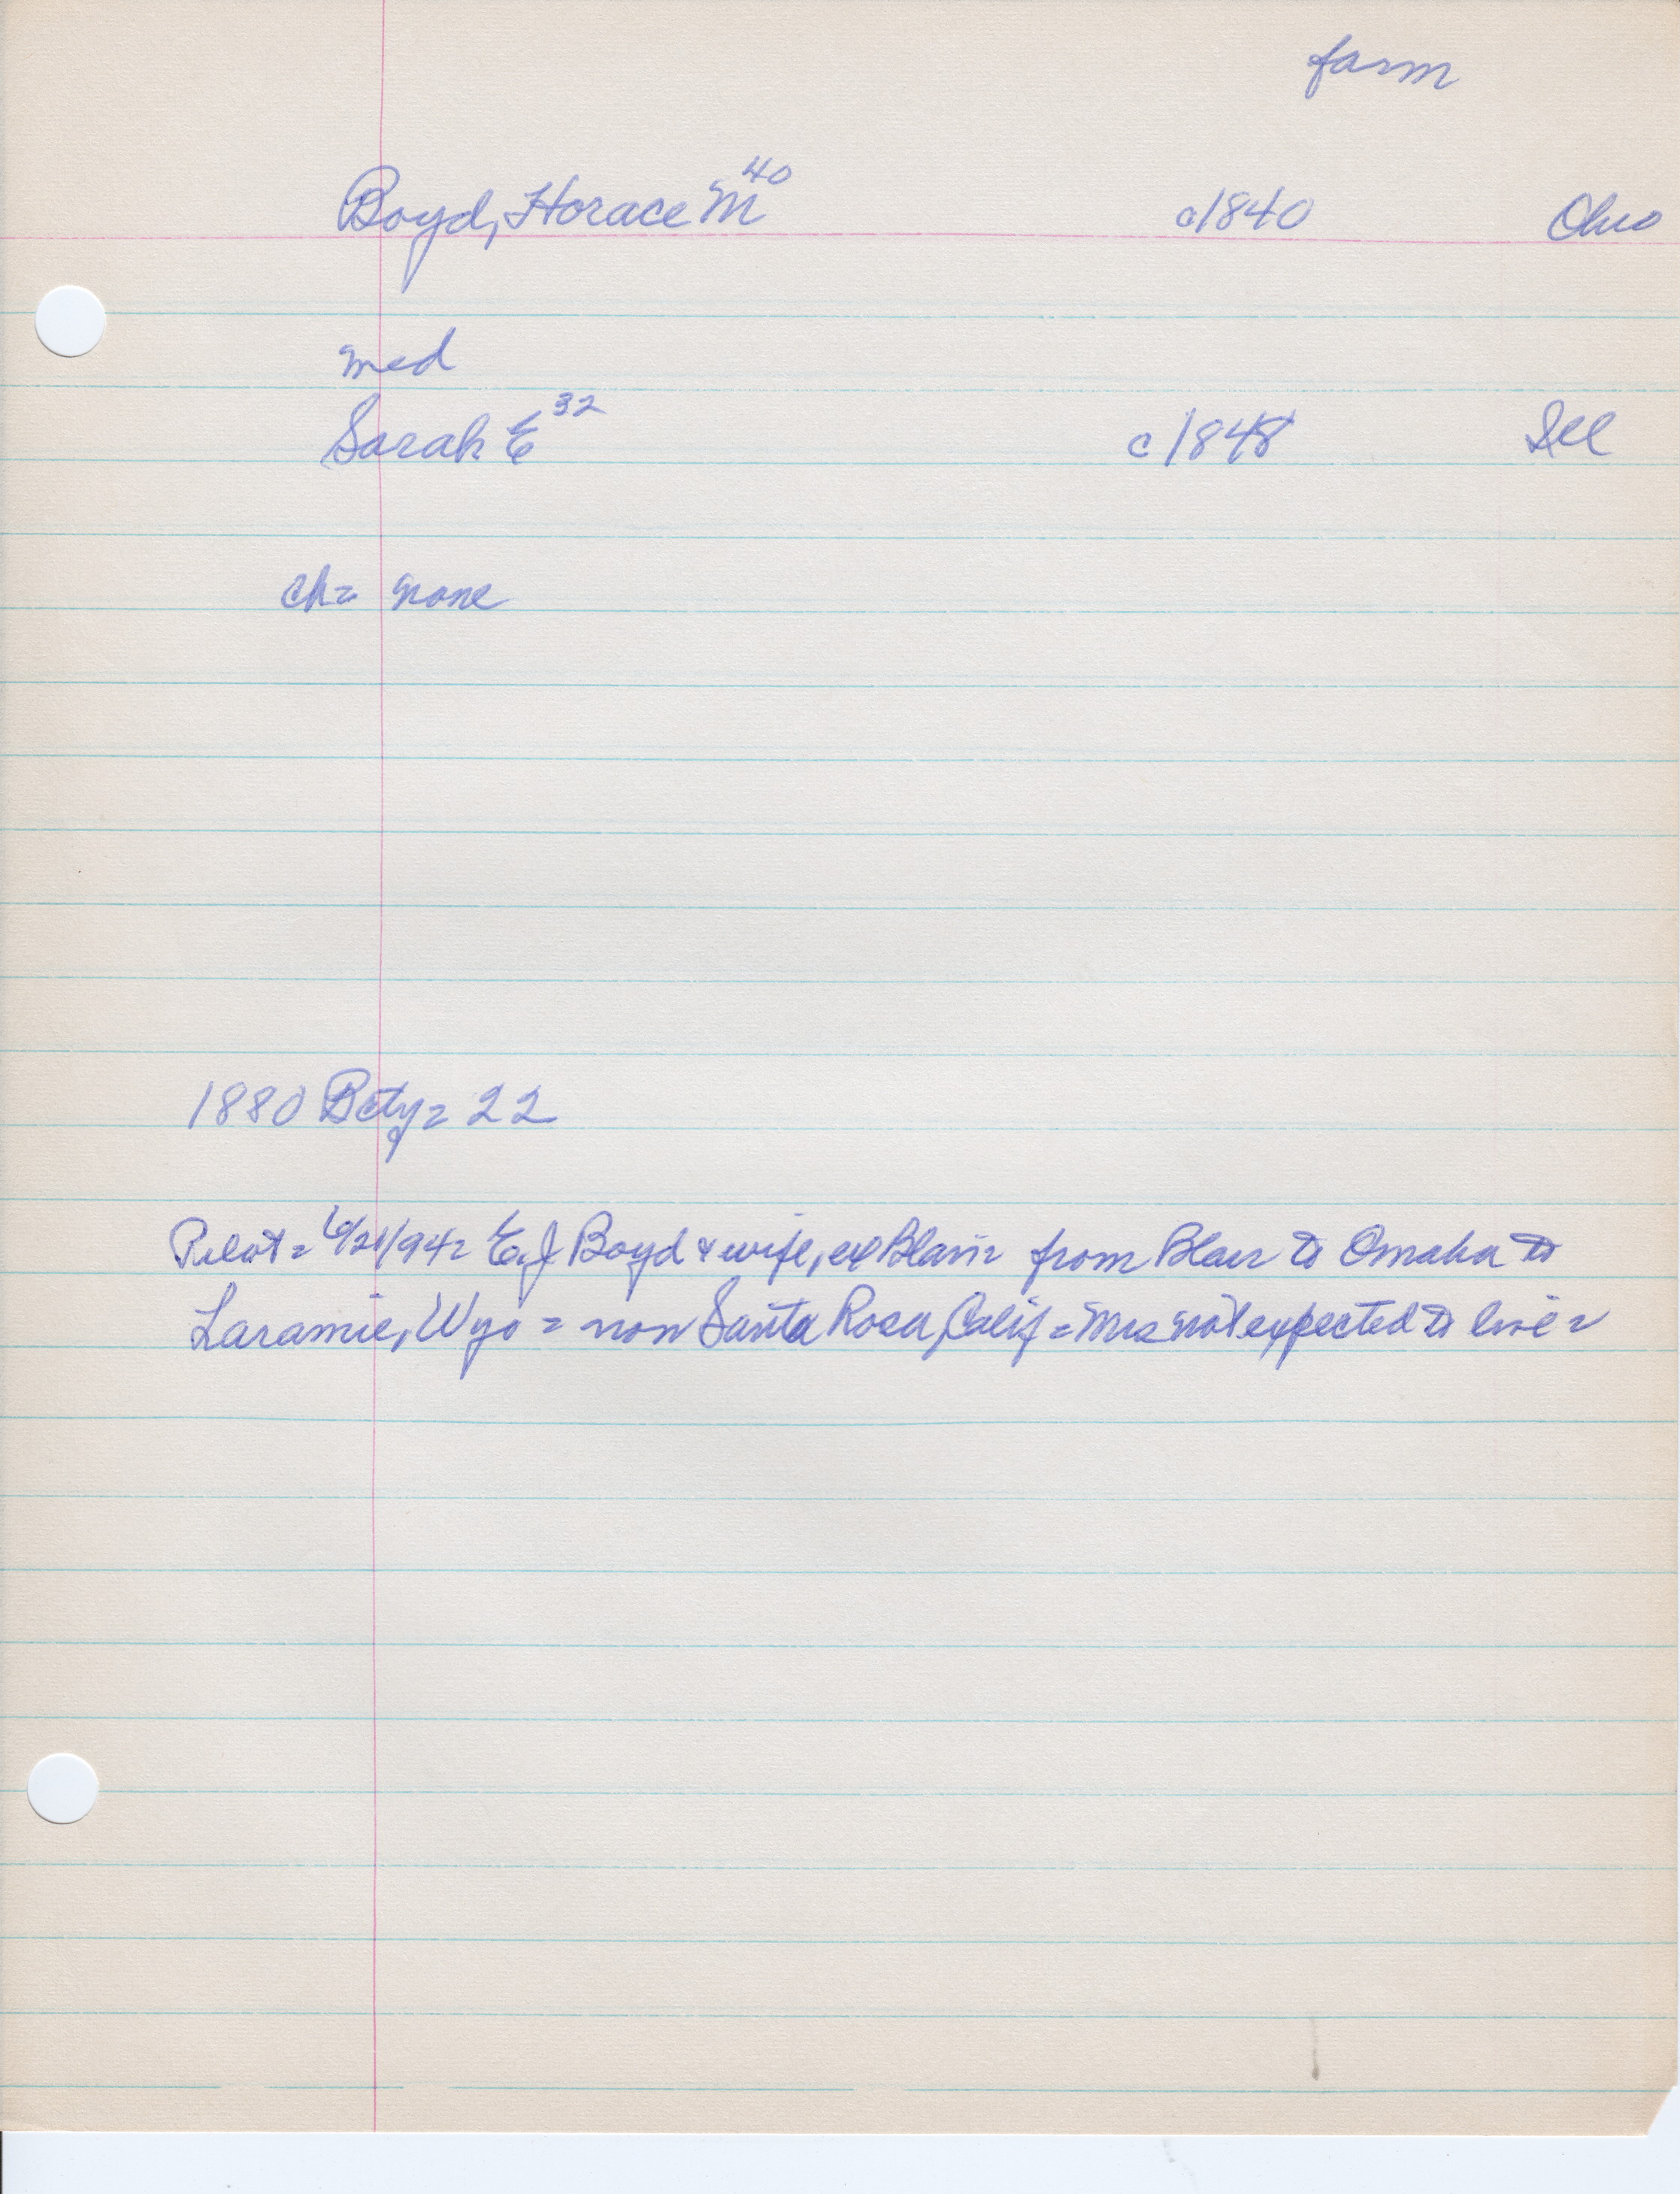 farm
Boyd, Horace M 40 c1840 Ohio
med
Sarah E 32 c1848 Ill
ch= none
1880 Bcty= 22
Pilot= 6/21/94= E.J. Boyd & wife, ex Blair= from Blair to Omaha to
Laramie, Wyo = now Santa Rosa, Calif = Mrs not expected to live=